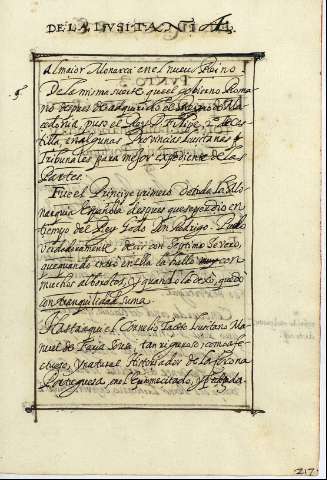 DE LA LUSITANIA.
al maior Monarca en el nuevo Reino.
De la misma suerte que el gobierno Roma-
no despues de adquirido el Reyno de Ma-
cedonia, puso el Rey D. Felipe 2º de Cas-
tilla, en algunas Provincias Lusitanas
Tribunales para mejor expediente de las
Partes.
Fue el Principe primero de toda la Mo-
narquia Española despues que se perdio en
tiempo del Rey Godo Don Rodrigo. Pudo
verdaderamente, decir con Septimo Severo,
que quando entró en ella la halló con
muchos alborotos, y quando la dexò, quedó
con tranquilidad suma.
Hasta aqui el Cornelio Tacito Lusitano Ma-
nuel de Faria Sousa, tan riguroso, como afe-
ctuoso, y natural Historiador de la Corona
Portuguesa, en el
217